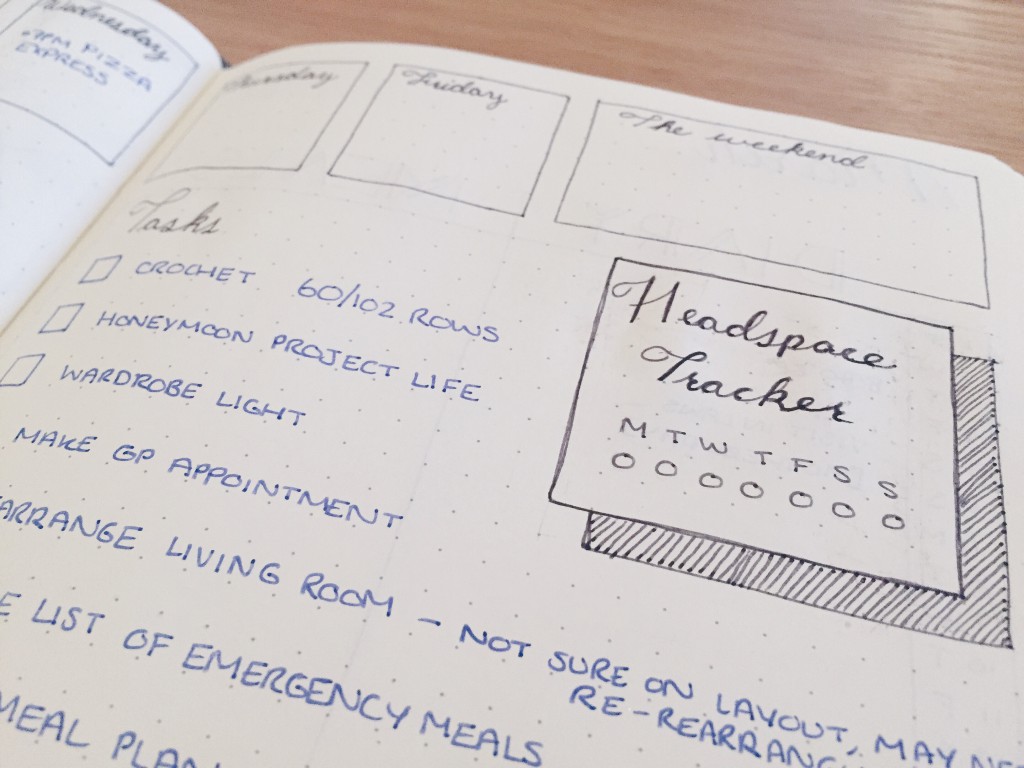 Wednesday
•7PM PIZZA
EXPRESS
Thursday
Friday
The weekend
Tasks
CROCHET 60/102 ROWS
HONEYMOON PROJECT LIFE
WARDROBE LIGHT
MAKE GP APPOINTMENT
ARRANGE LIVING ROOM – NOT SURE ON LAYOUT, MAY
RE-REARRANG
LIST OF EMERGENCY MEALS
MEAL PLAN
Headspace
Tracker
M T W T F S S